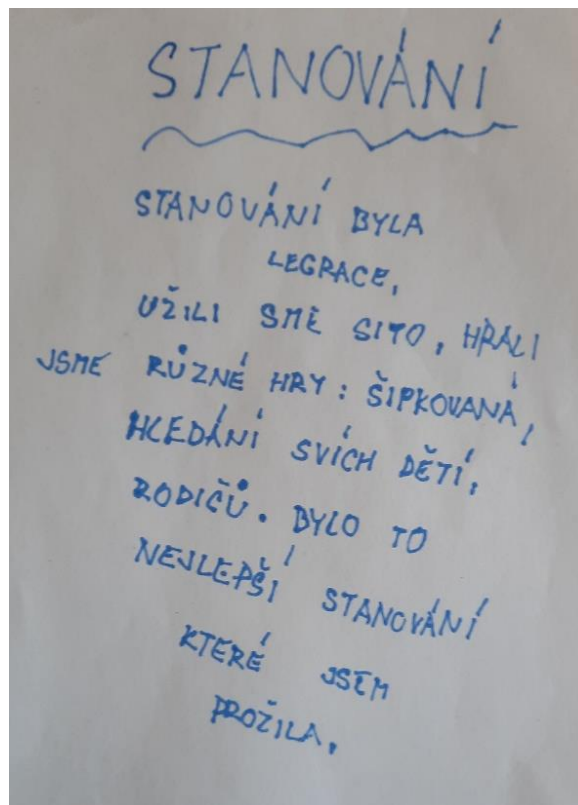 STANOVÁNÍ
STANOVÁNÍ BYLA
LEGRACE,
UŽILI SMĚ SITO, HŘÁLI
JSME RŮZNÉ HRY: ŠIPKOVANÁ,
HLEDÁNÍ SVÍCH DĚTÍ,
RODIČŮ. BYLO TO
NEJLEPŠÍ STANOVÁNÍ
KTERÉ JSEM
PROŽILA.